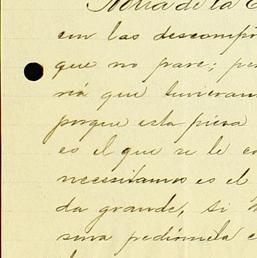 de la
con las descompo
que no pare; per
ria que tuvieram
porque esta pieza
es el que se le ca
necesitamos es el
da grande, si
sina pedírmela e